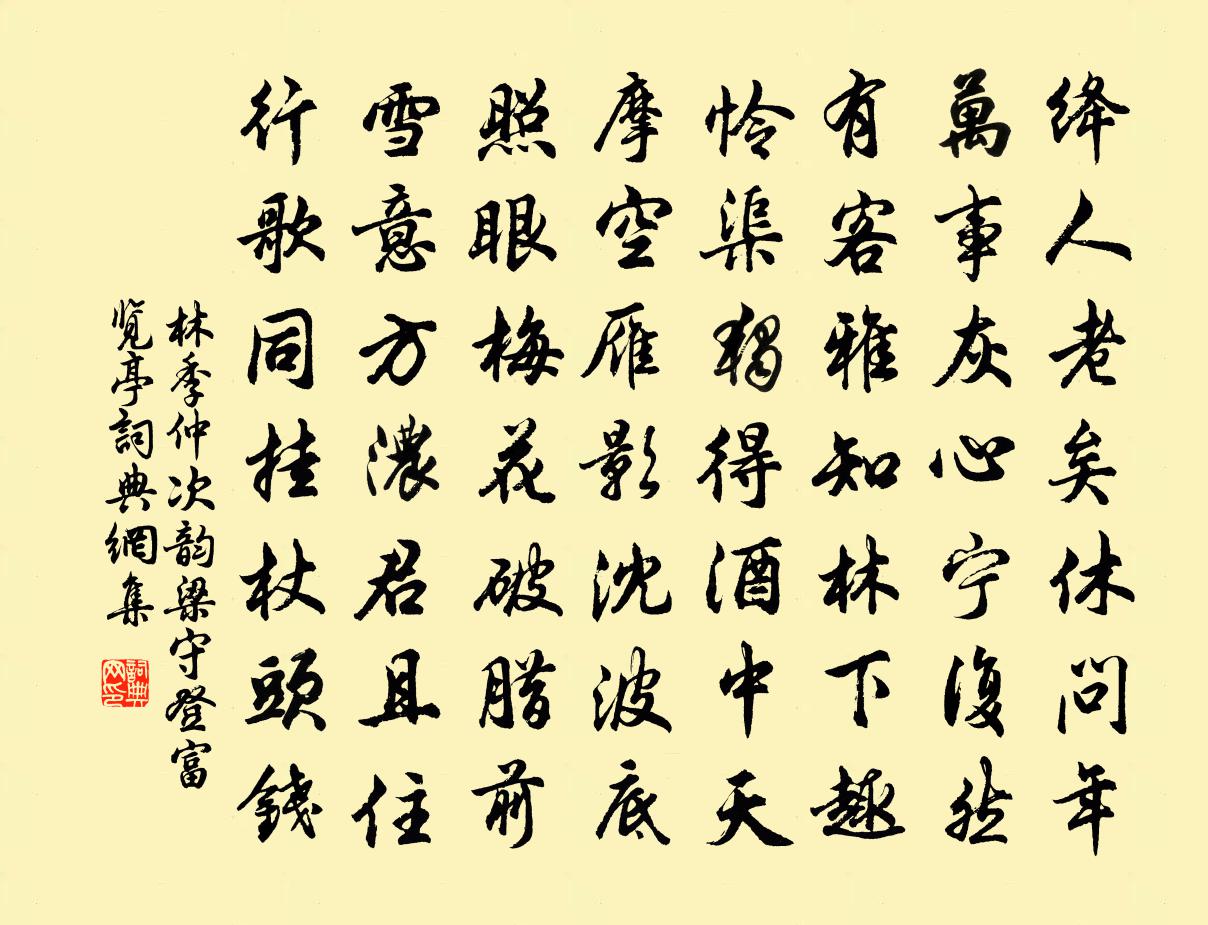 绛人老矣休问年
萬事灰心宁復然
有客雅知林下趣
怜渠獨得酒中天
摩空雁影沈波底
照眼梅花破腊前
雪意方濃君且住
行歌同挂杖頭錢
林季仲次韵梁守登富
览亭詞典網集
詞典网印